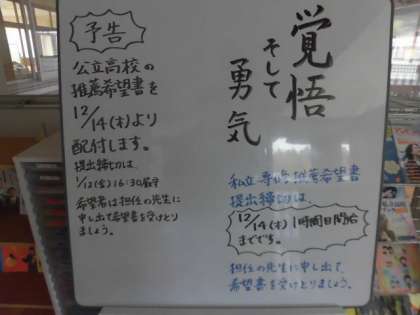 覚悟
そして
勇気
私立専修推薦希望書
提出締切は、
12/14(木)1時間目開始
までです。
担任の先生に申し出て
希望書を受けとりましょう。
予告
公立高校の
推薦希望書を
12/14(木)より
配付します。
提出締切は、
1/12(金)16:30厳守
希望者は担任の先生に
申し出て希望書を受けとり
ましょう。